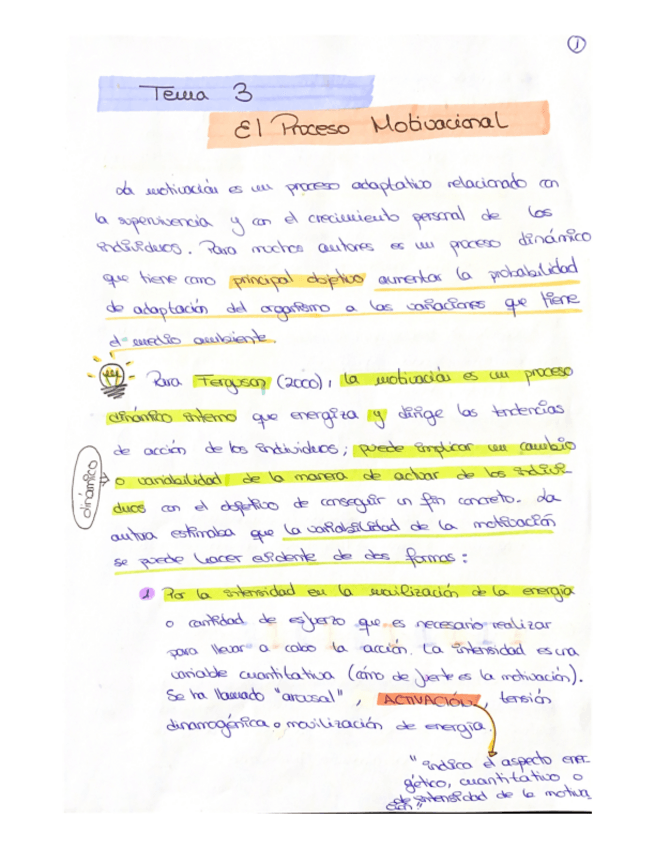 1
Tema 3
El Proceso Motivacional
La motivación es un proceso adaptativo relacionado con
la supervivencia y con el crecimiento personal de los
individuos. Para muchos autores es un proceso dinámico
que tiene como principal objetivo aumentar la probabilidad
de adaptación del organismo a las variaciones que tiene
el medio ambiente.
Para Ferguson (2000), la motivación es un proceso
dinámico interno que energiza y dirige las tendencias
de acción de los individuos; puede implicar un cambio
dinámico
o variabilidad de la manera de actuar de los indivi-
duos con el objetivo de conseguir un fin concreto. La
autora estimaba que la variabilidad de la motivación
se puede hacer evidente de dos formas:
1 Por la intensidad en la movilización de la energía
o cantidad de esfuerzo que es necesario realizar
para llevar a cabo la acción. La intensidad es una
variable cuantitativa (cómo de fuerte es la motivación).
Se ha llamado "arousal", ACTIVACIÓN, tensión
dinamogénica o movilización de energía.
"indica el aspecto ener-
gético, cuantitativo o
de intensidad de la motiva
ción"